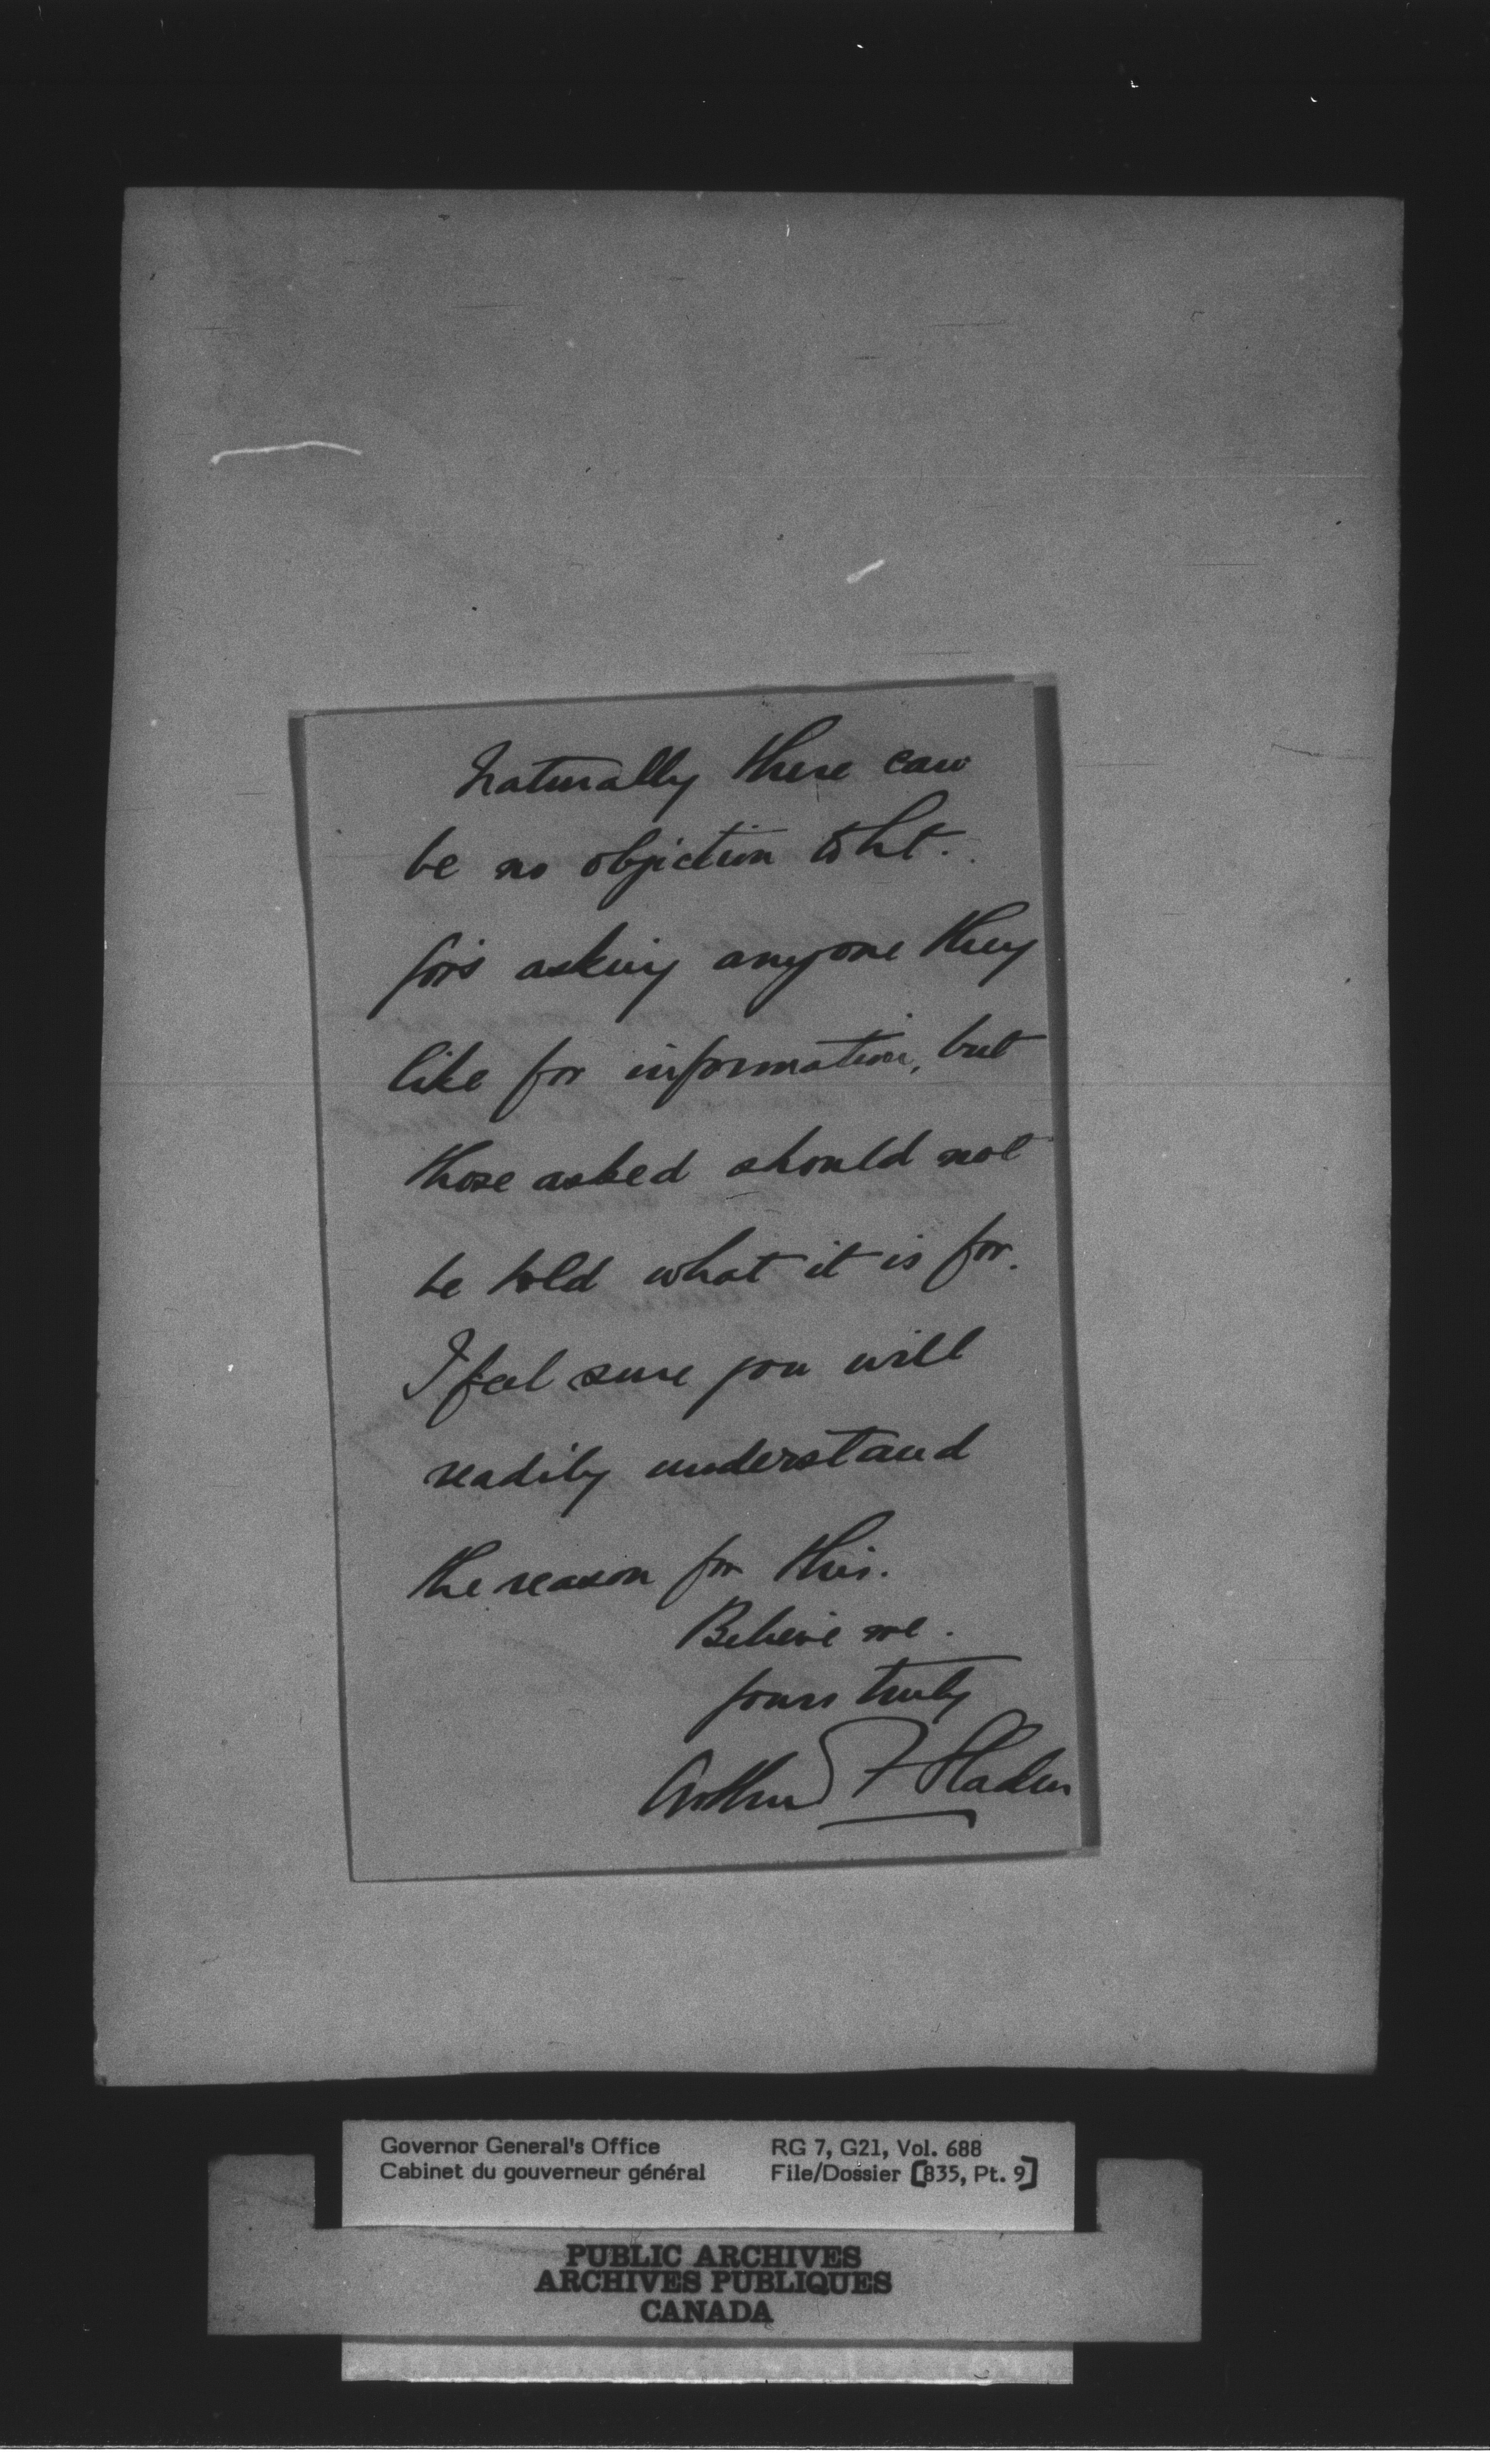 Naturally there can
be no objection to Lt.
Gov's asking anyone they
like for information, but
those asked should not
be told what it is for.
I feel sure you will
readily understand
the reason for this.
Believe me.
yours truly
Arthur F Sladen
Governor General's Office
Cabinet du gouverneur général
RG 7, G21, Vol. 688
File/Dossier [835, Pt. 9]
PUBLIC ARCHIVES
ARCHIVES PUBLIQUES
CANADA